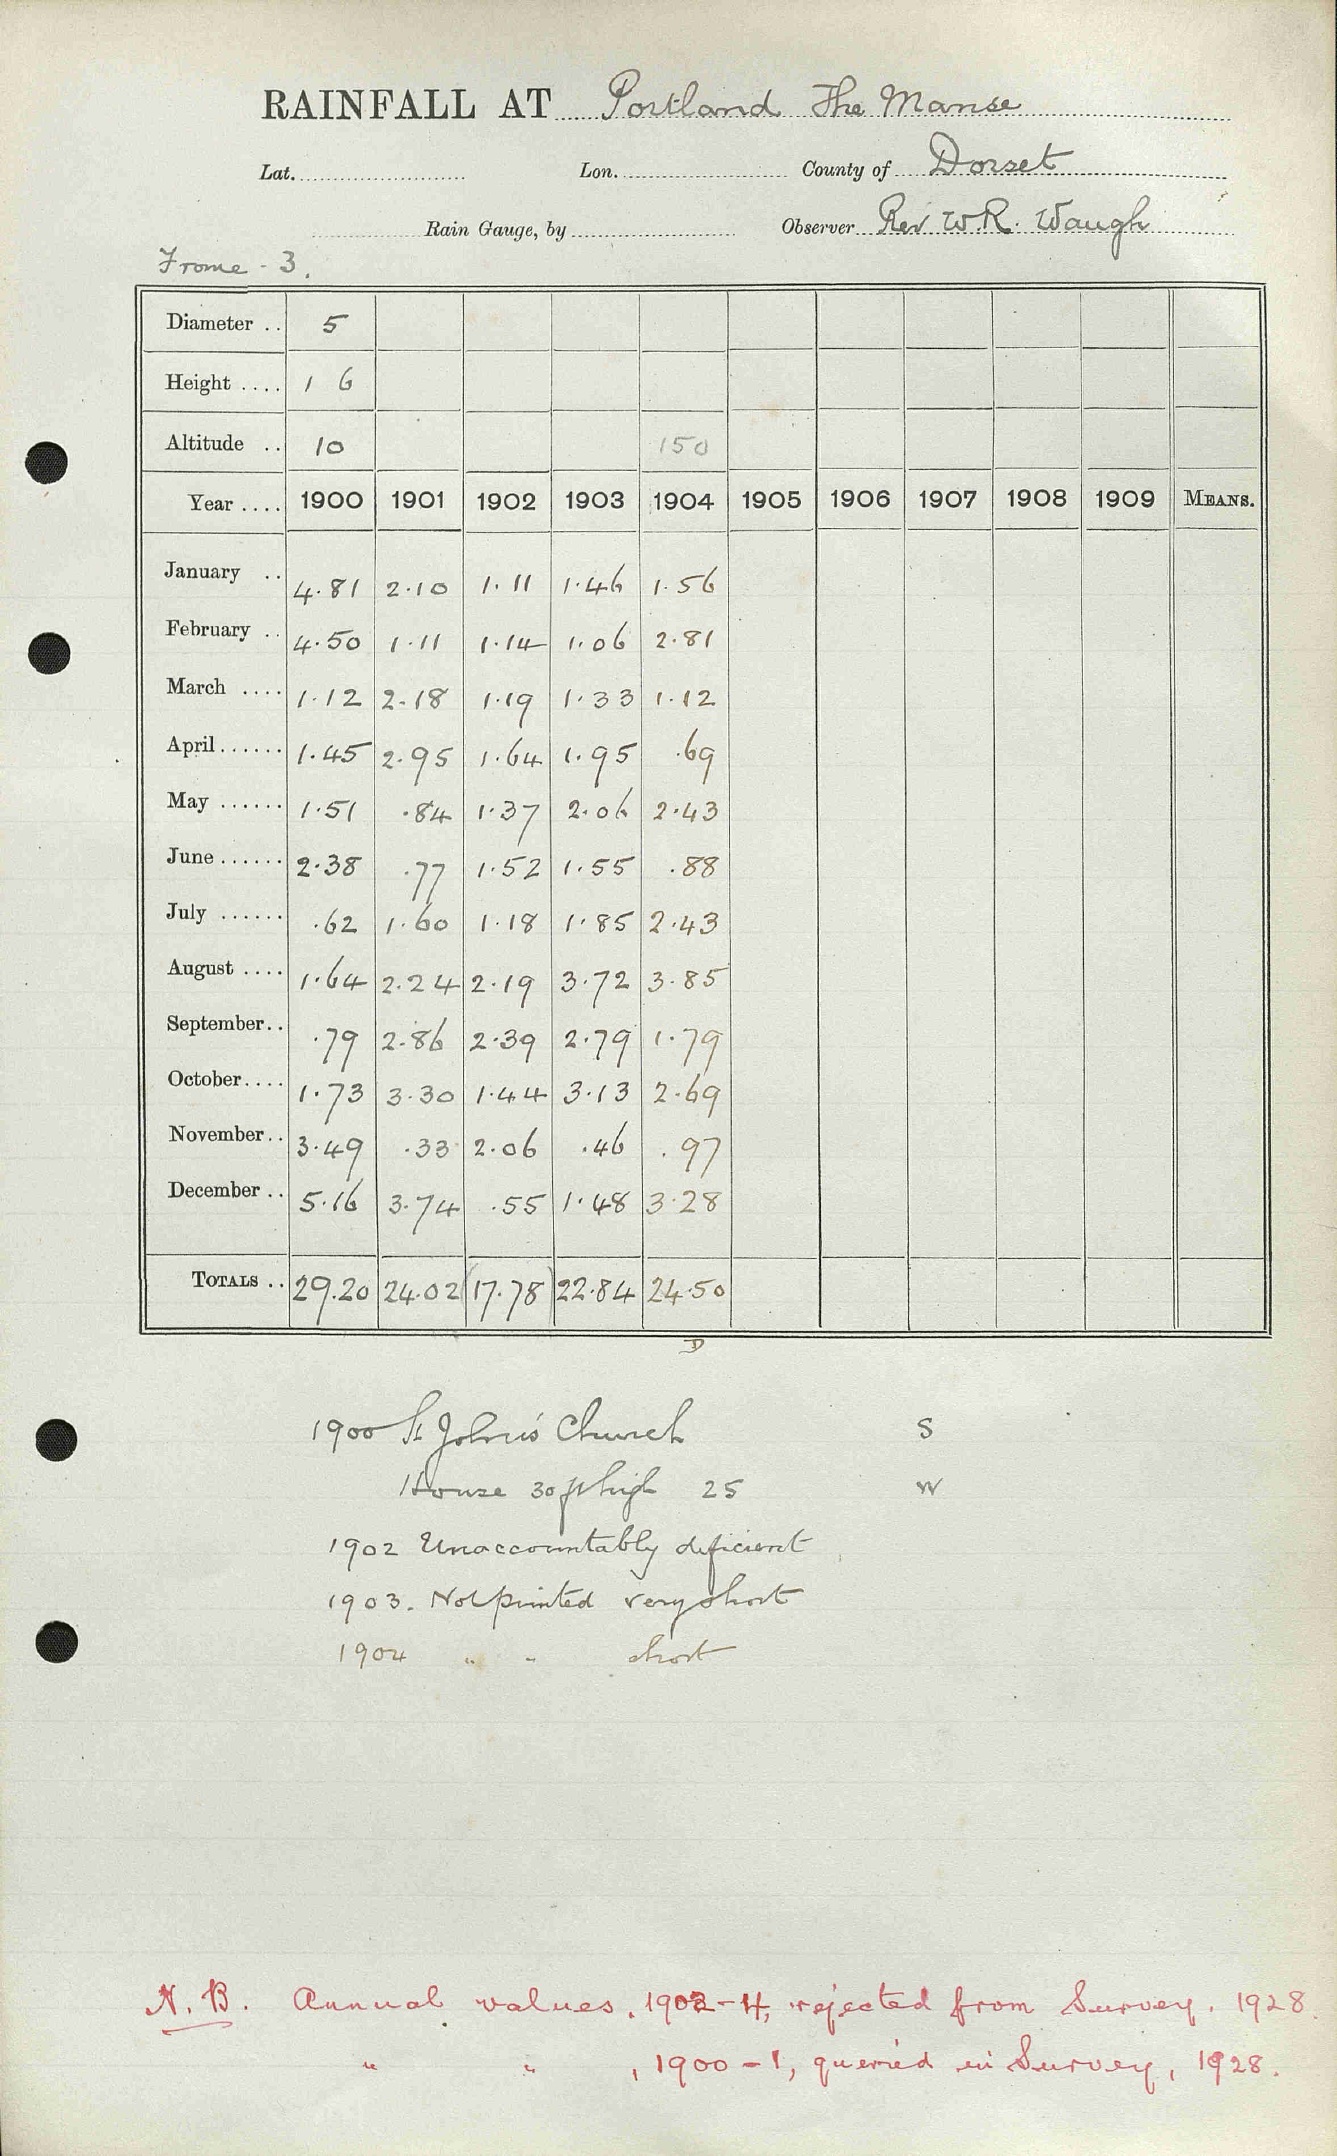 RAINFALL AT Portland The Manse
Lat. Lon. County of Dorset
Rain Gauge, by Observer Rev. W.R. Waugh
Frome - 3.
Diameter .. 5
Height .... 1 6
Altitude .. 10 150
Year .... 1900 1901 1902 1903 1904 1905 1906 1907 1908 1909 MEANS.
January .. 4.81 2.10 1.11 1.46 1.56
February .. 4.50 1.11 1.14 1.06 2.81
March .... 1.12 2.18 1.19 1.33 1.12
April...... 1.45 2.95 1.64 1.95 .69
May ...... 1.51 .84 1.37 2.06 2.43
June ...... 2.38 .77 1.52 1.55 .88
July ...... .62 1.60 1.18 1.85 2.43
August .... 1.64 2.24 2.19 3.72 3.85
September.. .79 2.86 2.39 2.79 1.79
October.... 1.73 3.30 1.44 3.13 2.69
November.. 3.49 .33 2.06 .46 .97
December .. 5.16 3.74 .55 1.48 3.28
TOTALS .. 29.20 24.02 (17.78) 22.84 24.50
D
1900 St John's Church S
House 30 ft high 25 W
1902 Unaccountably deficient
1903. Not printed very short
1904 " " short
N.B. Annual values, 1902-4, rejected from Survey, 1928.
" " , 1900-1, queried in Survey, 1928.